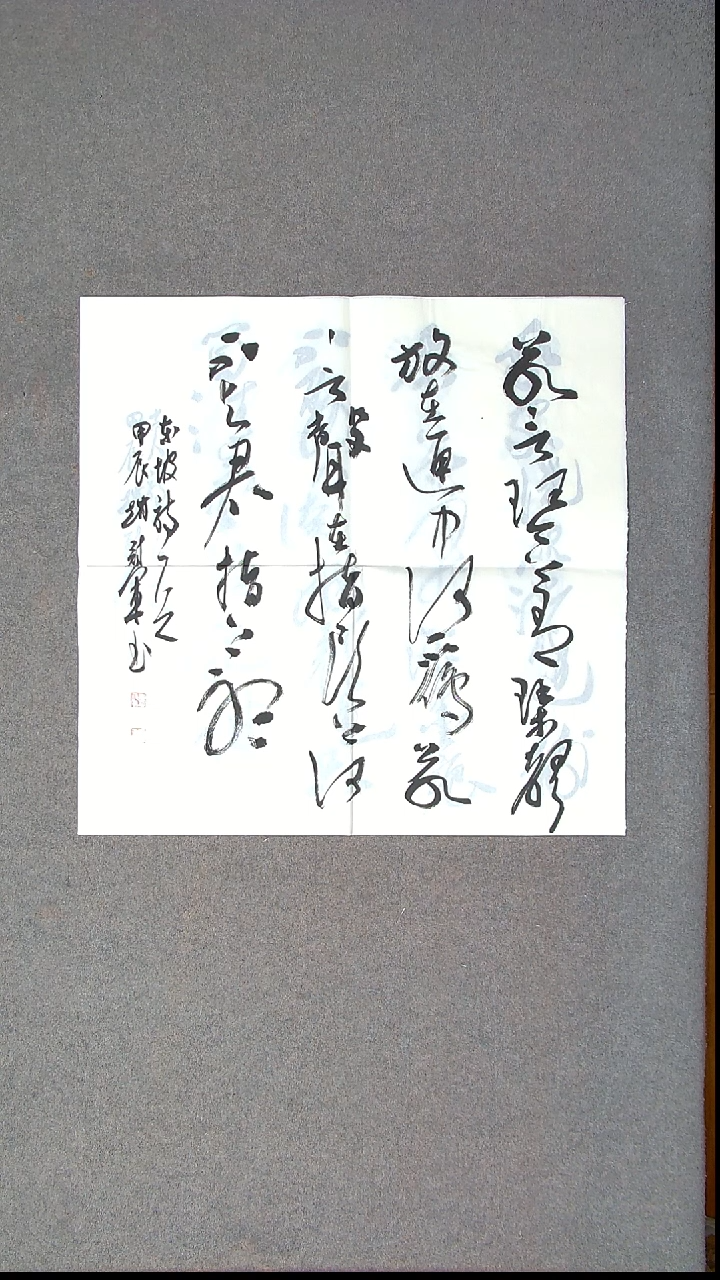 若言琴上有琴聲
放在匣中何不鳴若
言聲在指頭上何
不於君指上聽
東坡詩一首
甲辰趙